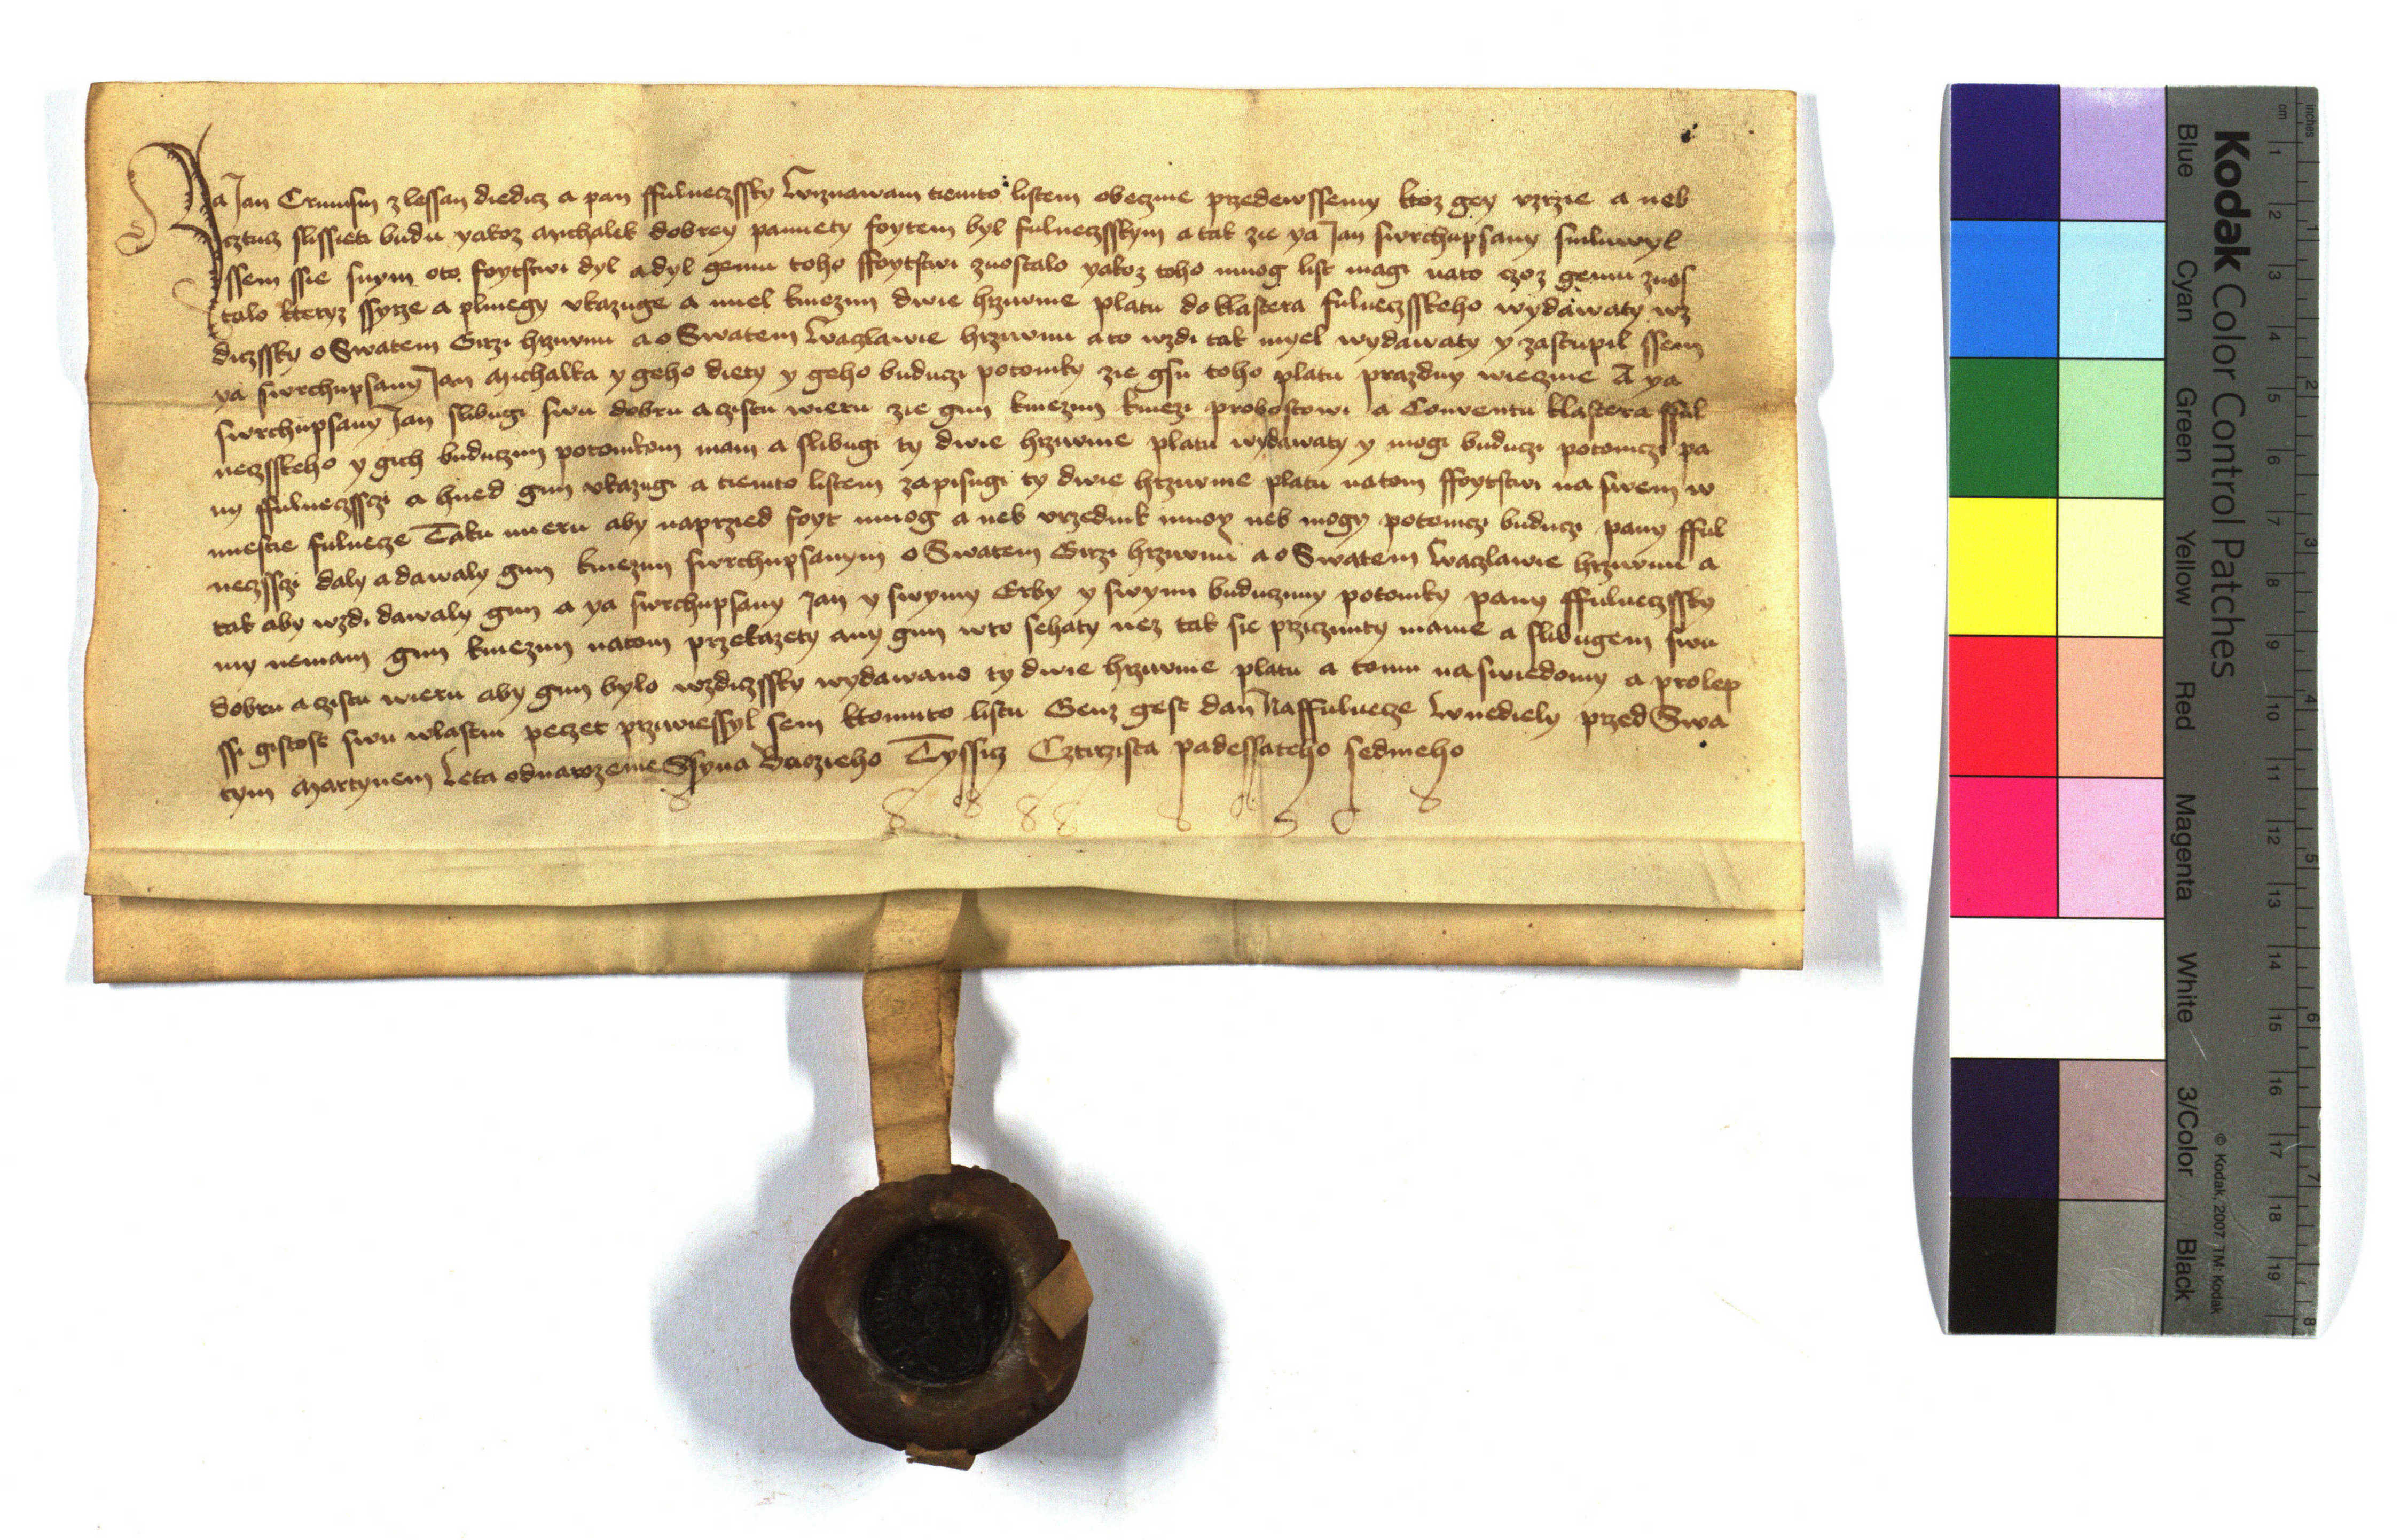 Ya Jan Crumsin z lessan diedicz a pan ffulneczssky Wiznawam tiemto listem obeczme przedewssemy ktoz gey vzrzie a neb
cztucz slissieti budu yakoz Michalek dobrey pamiety foytem byl fulneczsskym a tak zie ya Jan swrchupsany smluwyl
ssem ssie snym oto foytstwi dyl a dyl gemu toho ffoytstwi znostalo yakoz toho muog list magi nato czoz gemu znos
talo kteryz ssyrze a plniegy vkazuge a miel kniezim dwie hrziwnie platu do klastera fulneczsskeho wydawaty wz
diczssky o Swatem Girzi hrziwnu a o Swatem Waczlawie hrziwnu a to wzdi tak myel wydawaty y zastupil ssem
ya swrchupsany Jan Michalka y geho diety y geho buduczi potomky zie gsu toho platu prazdny wieczme A ya
swrchupsany Jan slibugi swu dobru a czistu wieru zie gim kniezim kniezi probostowi a Conventu klastera fful
neczsskeho y gich buduczim potomkom mam a slibugi ty dwie hrziwnie platu wydawaty y mogi buduczi potomczi pa
ny ffulneczssczi a hned gim vkazugi a tiemto listem zapisugi ty dwie hrziwnie platu natom ffoytstwi na swem w
miestie fulnecze Taku mieru aby naprzied foyt muog a neb vrzednik muoy neb mogy potomczi buduczi pany fful
neczssczi daly a dawaly gim kniezim swrchupsanym o Swatem Girzi hrziwnu a o Swatem Waczlawie hrziwnu a
tak aby wzdi dawaly gim a ya swrchupsany Jan y swymy Erby y swymi buduczimy potomky pany ffulneczssky
my nemam gim kniezim natom przekazety any gim wto sehaty nez tak sie prziczinity mame a slibugem swu
dobru a czistu wieru aby gim bylo wzdiczssky wydawano ty dwie hrziwnie platu a tomu na swiedomy a prolep
ssi gistost swu wlastni peczet przywiessyl sem ktomuto listu Genz gest dan Naffulnecze Wnediely przed Swa
tym Martynem Leta odnarozenie Ssyna Bozieho Tyssicz Cztirzista padessateho sedmeho
Kodak Color Control Patches
Blue Cyan Green Yellow Red Magenta White 3/Color Black
© Kodak, 2007 TM: Kodak
cm 1 2 3 4 5 6 7 8 9 10 11 12 13 14 15 16 17 18 19
inches 1 2 3 4 5 6 7 8